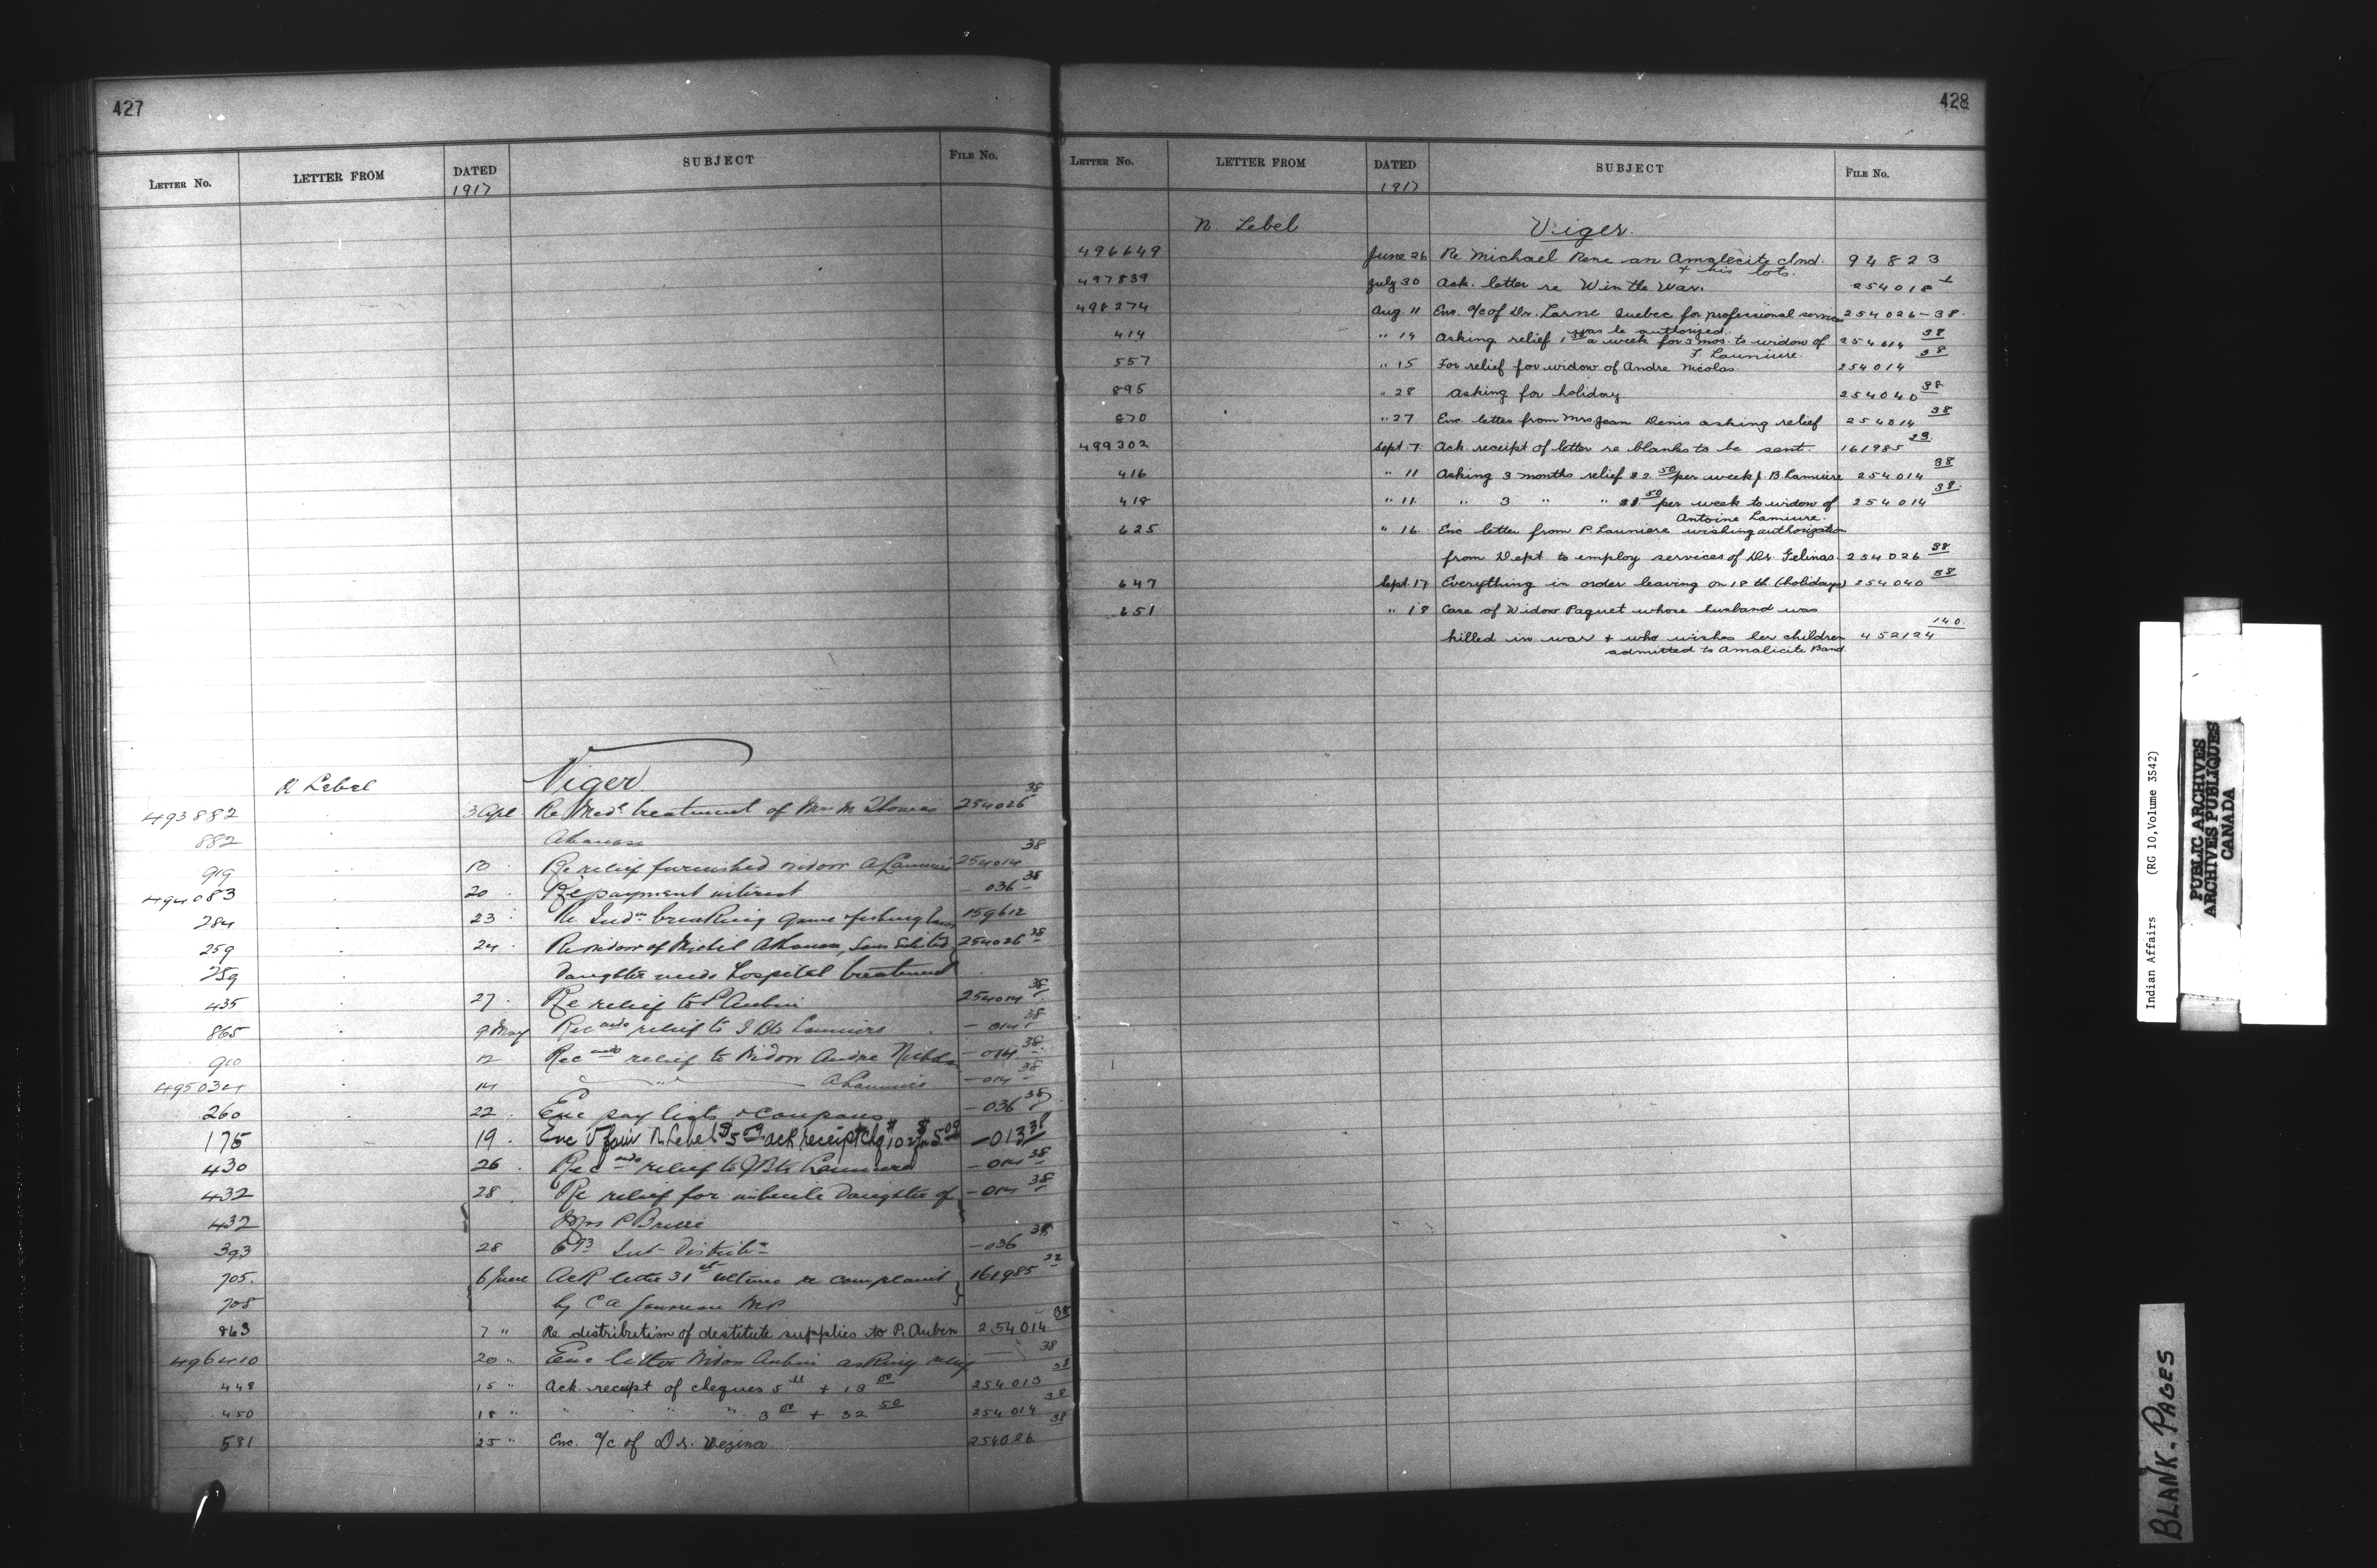 427
LETTER No. LETTER FROM DATED SUBJECT FILE No.
1917
N Lebel Viger
493882 3 Apl Re Med. treatment of Mrs M Thomas 254026 38
882 Akanase
919 10 Re relief furnished widow A Launiere 254014 38
494083 20 Re payment interest – 036 38
284 23 Re Indns breaking game & fishing laws 159612
259 24 Re widow of Michel Akanase, 254026 38
259 Daughter needs hospital treatment
435 27 Re relief to P Aubin 254014 38
865 9 May Rec ends relief to J Bte Launiere – 014 38
910 12 Rec ends relief to Widow Andre Nicholas – 014 38
495034 14 " A Launiere – 014 38
260 22 Enc pay lists & coupons – 036 38
175 19 Enc N Lebel $5.09 ack. receipt chq – 013 38
430 26 Rec ends relief to J Bte Launiere – 014 38
432 28 Re relief for daughter of – 014 38
432 Mrs P Briere
393 28 Int Distribn – 036 38
705 6 June Ack letter 31st ultimo re complaint 161985 22
708 by C A Gauvreau M.P.
863 7 " Re distribution of destitute supplies to P. Aubin 254014 38
496410 20 " Enc letter Widow Aubin asking relief 38
448 15 " Ack. receipt of cheques 5 11 + 19 00 254013 38
450 18 " " " " 3 00 + 32 50 254014 38
581 25 " Enc. a/c of Dr. Vezina 254026 38
428
LETTER No. LETTER FROM DATED SUBJECT FILE No.
1917
N. Lebel Viger.
496649 June 26 Re Michael Rene an Amalecite Ind. 94823
+ his lots.
497839 July 30 Ack. letter re Win the War. 254018 1
498274 Aug. 11 Enc. a/c of Dr. Larne Quebec for professional services 254026-38.
was be authorized.
414 " 14 Asking relief 1 50 a week for 3 mos. to widow of 254014 38
F. Launiere.
557 " 15 For relief for widow of Andre Nicolas. 254014 38
895 " 28 Asking for holiday 254040 38
870 " 27 Enc letter from Mrs Jean Denis asking relief 254014 38
499302 Sept. 7 Ack. receipt of letter re blanks to be sent. 161985 23.
416 " 11 Asking 3 months relief $2. 50 per week J. B. Lamiure 254014 38
418 " 11. " 3 " " $1. 50 per week to widow of 254014 38.
Antoine Lamiure.
625 " 16. Enc letter from P. Launiere wishing authorization
from Dept to employ services of Dr. Gelinas. 254026 38
647 Sept. 17 Everything in order leaving on 18th (holidays) 254040 38
651 " 18 Case of Widow Paquet whose husband was
killed in war + who wishes her children 452124 140.
admitted to Amalicite Band.
Indian Affairs (RG 10, Volume 3542)
PUBLIC ARCHIVES
ARCHIVES PUBLIQUES
CANADA
BLANK. PAGES